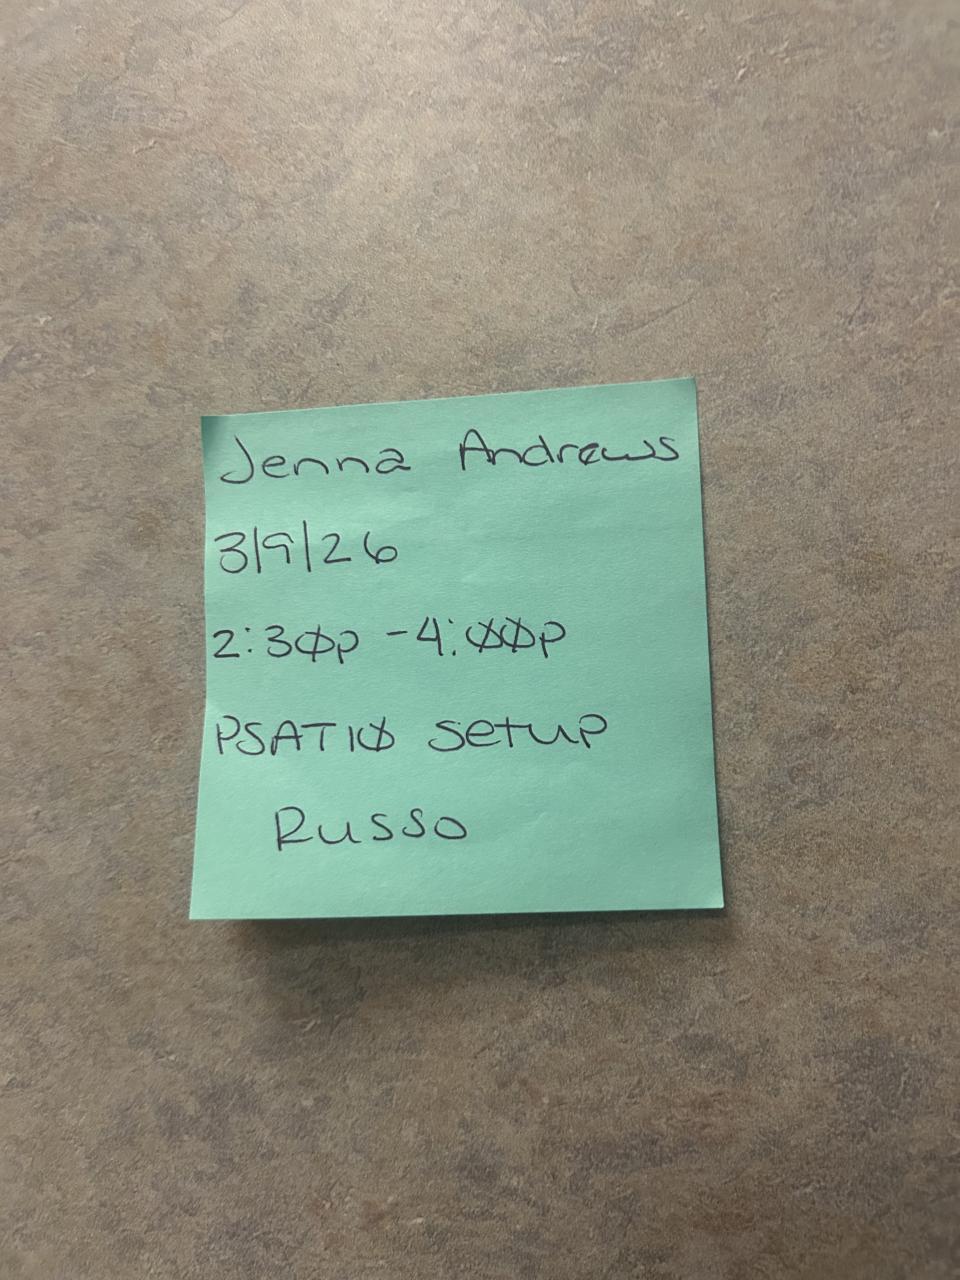 Jenna Andrews
3/9/26
2:30p - 4:00p
PSAT10 setup
Russo